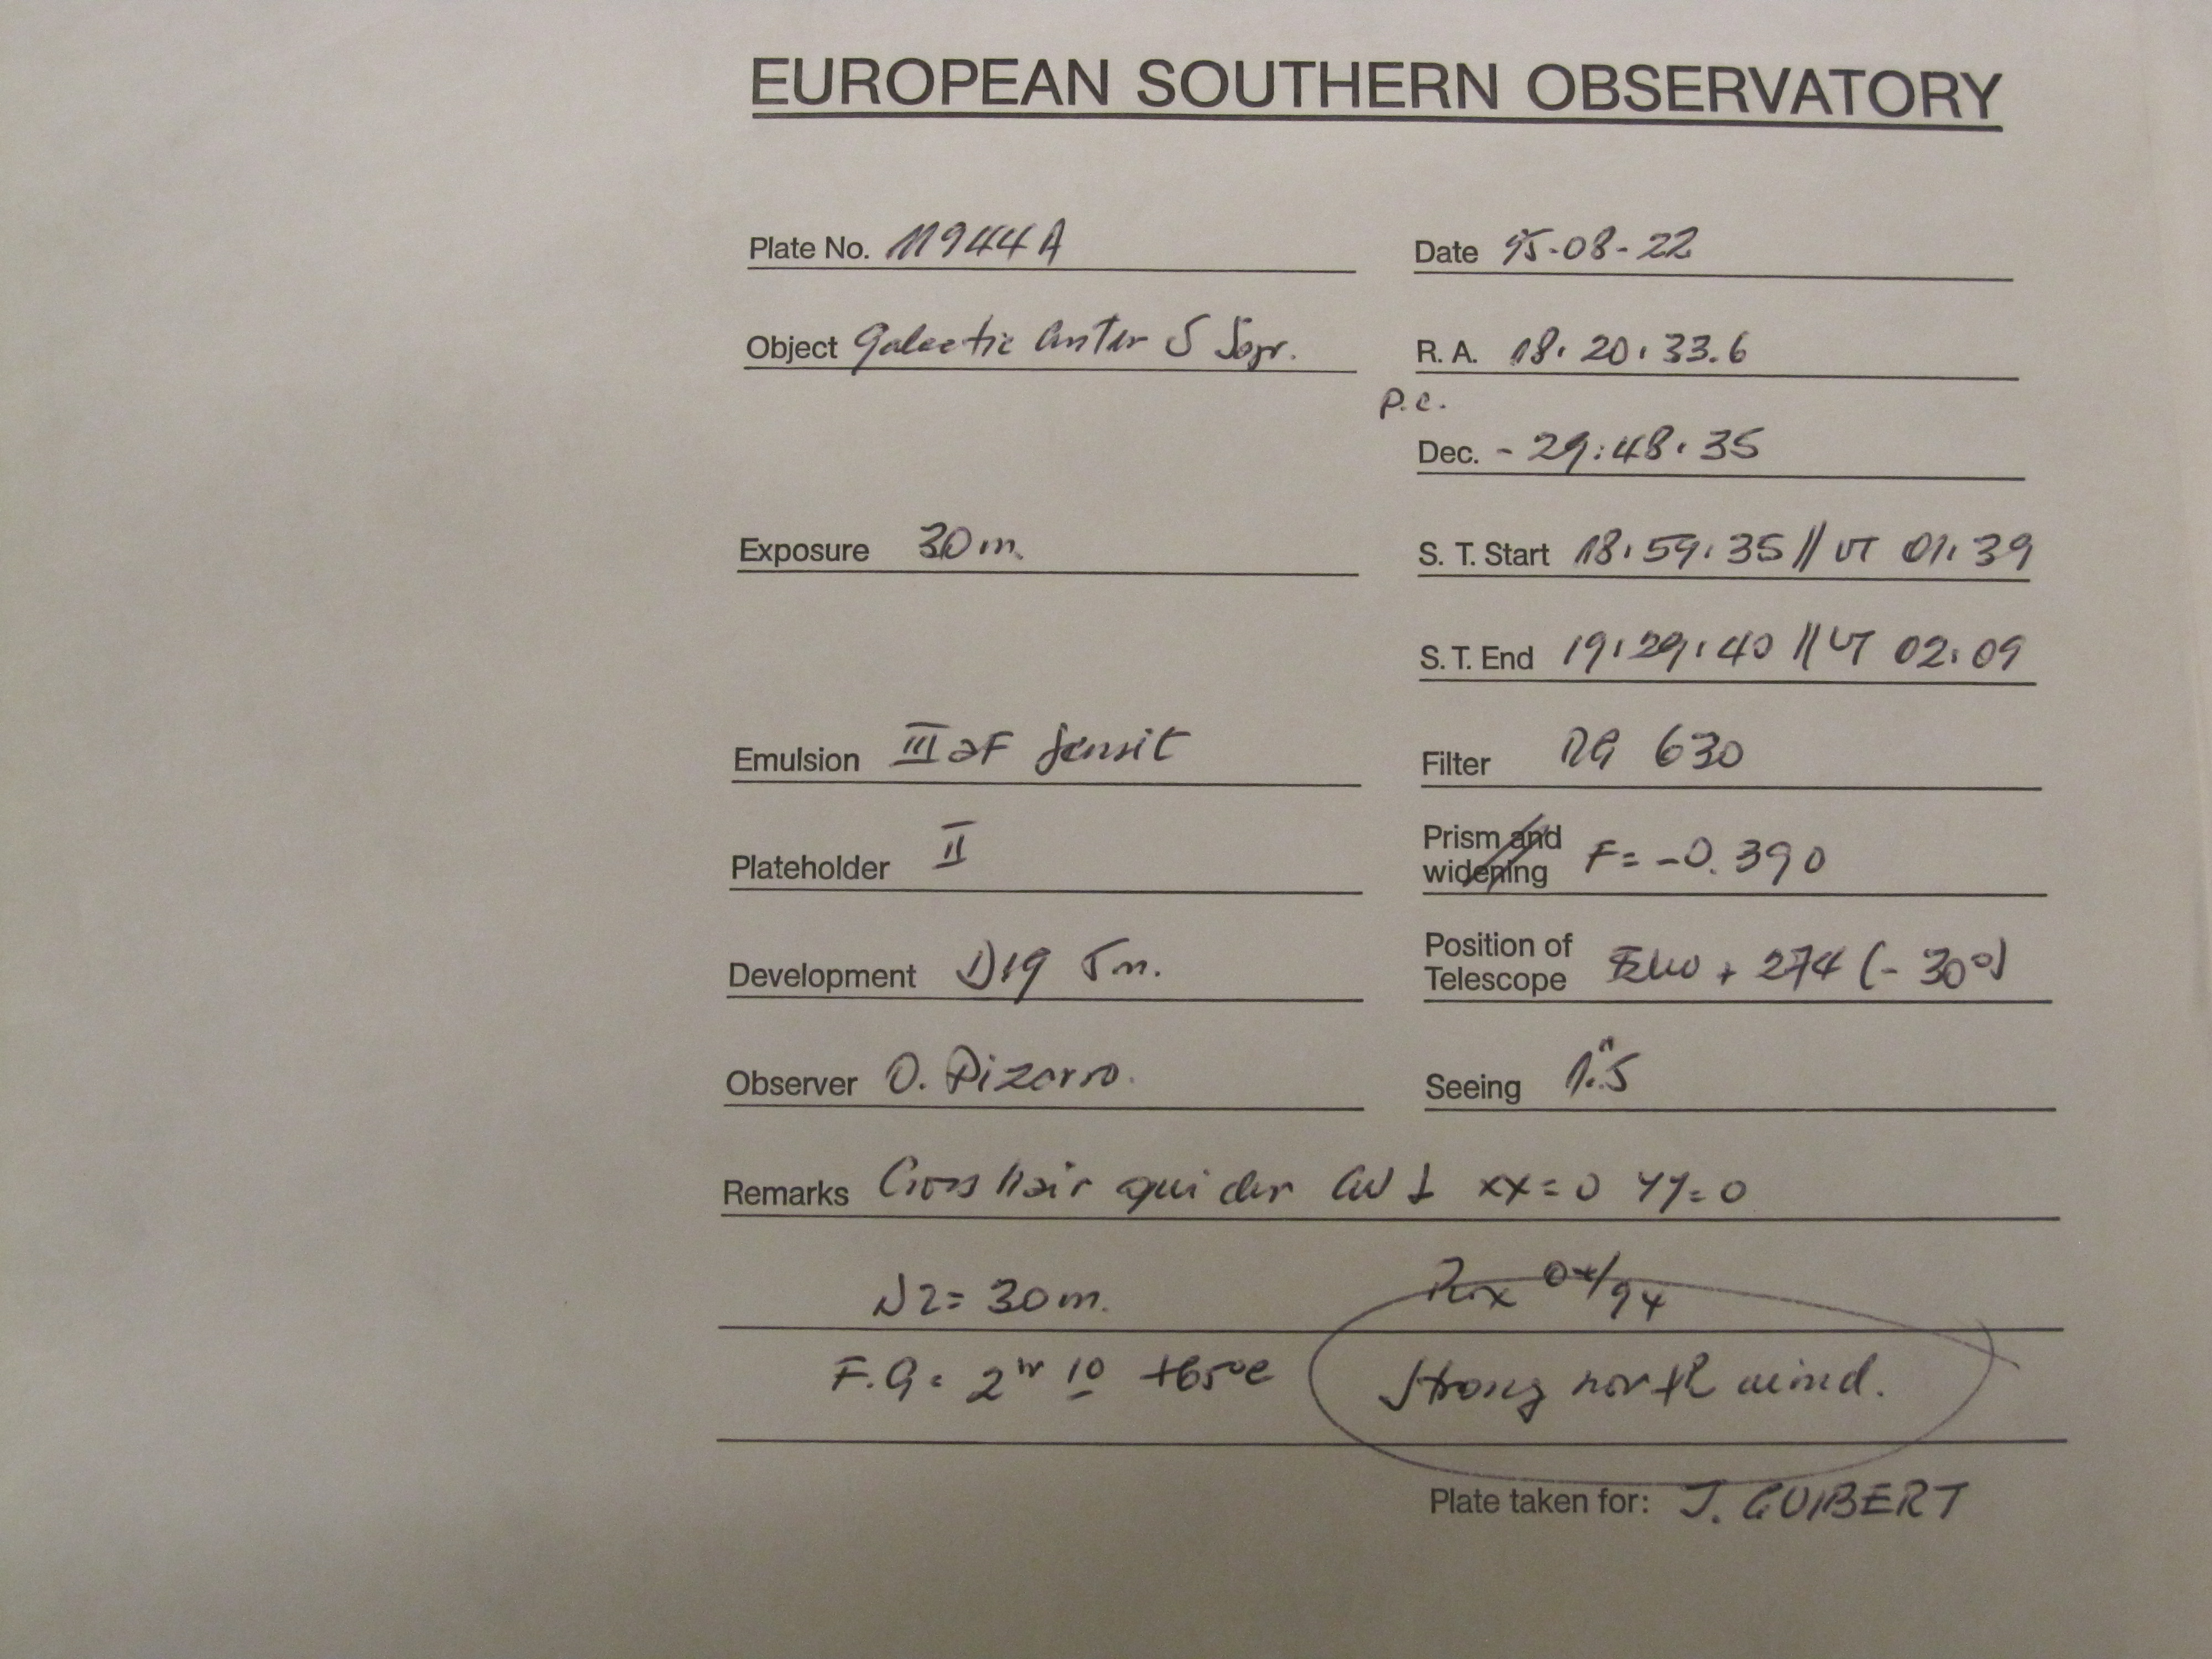 EUROPEAN SOUTHERN OBSERVATORY
Plate No. 11944A Date 95-08-22
Object Galactic Center S Sgr. R. A. 18:20:33.6
P.C.
Dec. - 29:48:35
Exposure 30m. S. T. Start 18:59:35 // UT 01:39
S. T. End 19:29:40 // UT 02:09
Emulsion III aF sensit Filter RG 630
Plateholder II Prism and widening F= -0.390
Development D19 5m. Position of Telescope + 274 (- 30°)
Observer O. Pizarro. Seeing 1".5
Remarks Cross hair guider xx=0 yy=0
N2= 30m. 04/94
F.G= 2hr 10 +65°C Strong north wind.
Plate taken for: J. GUIBERT